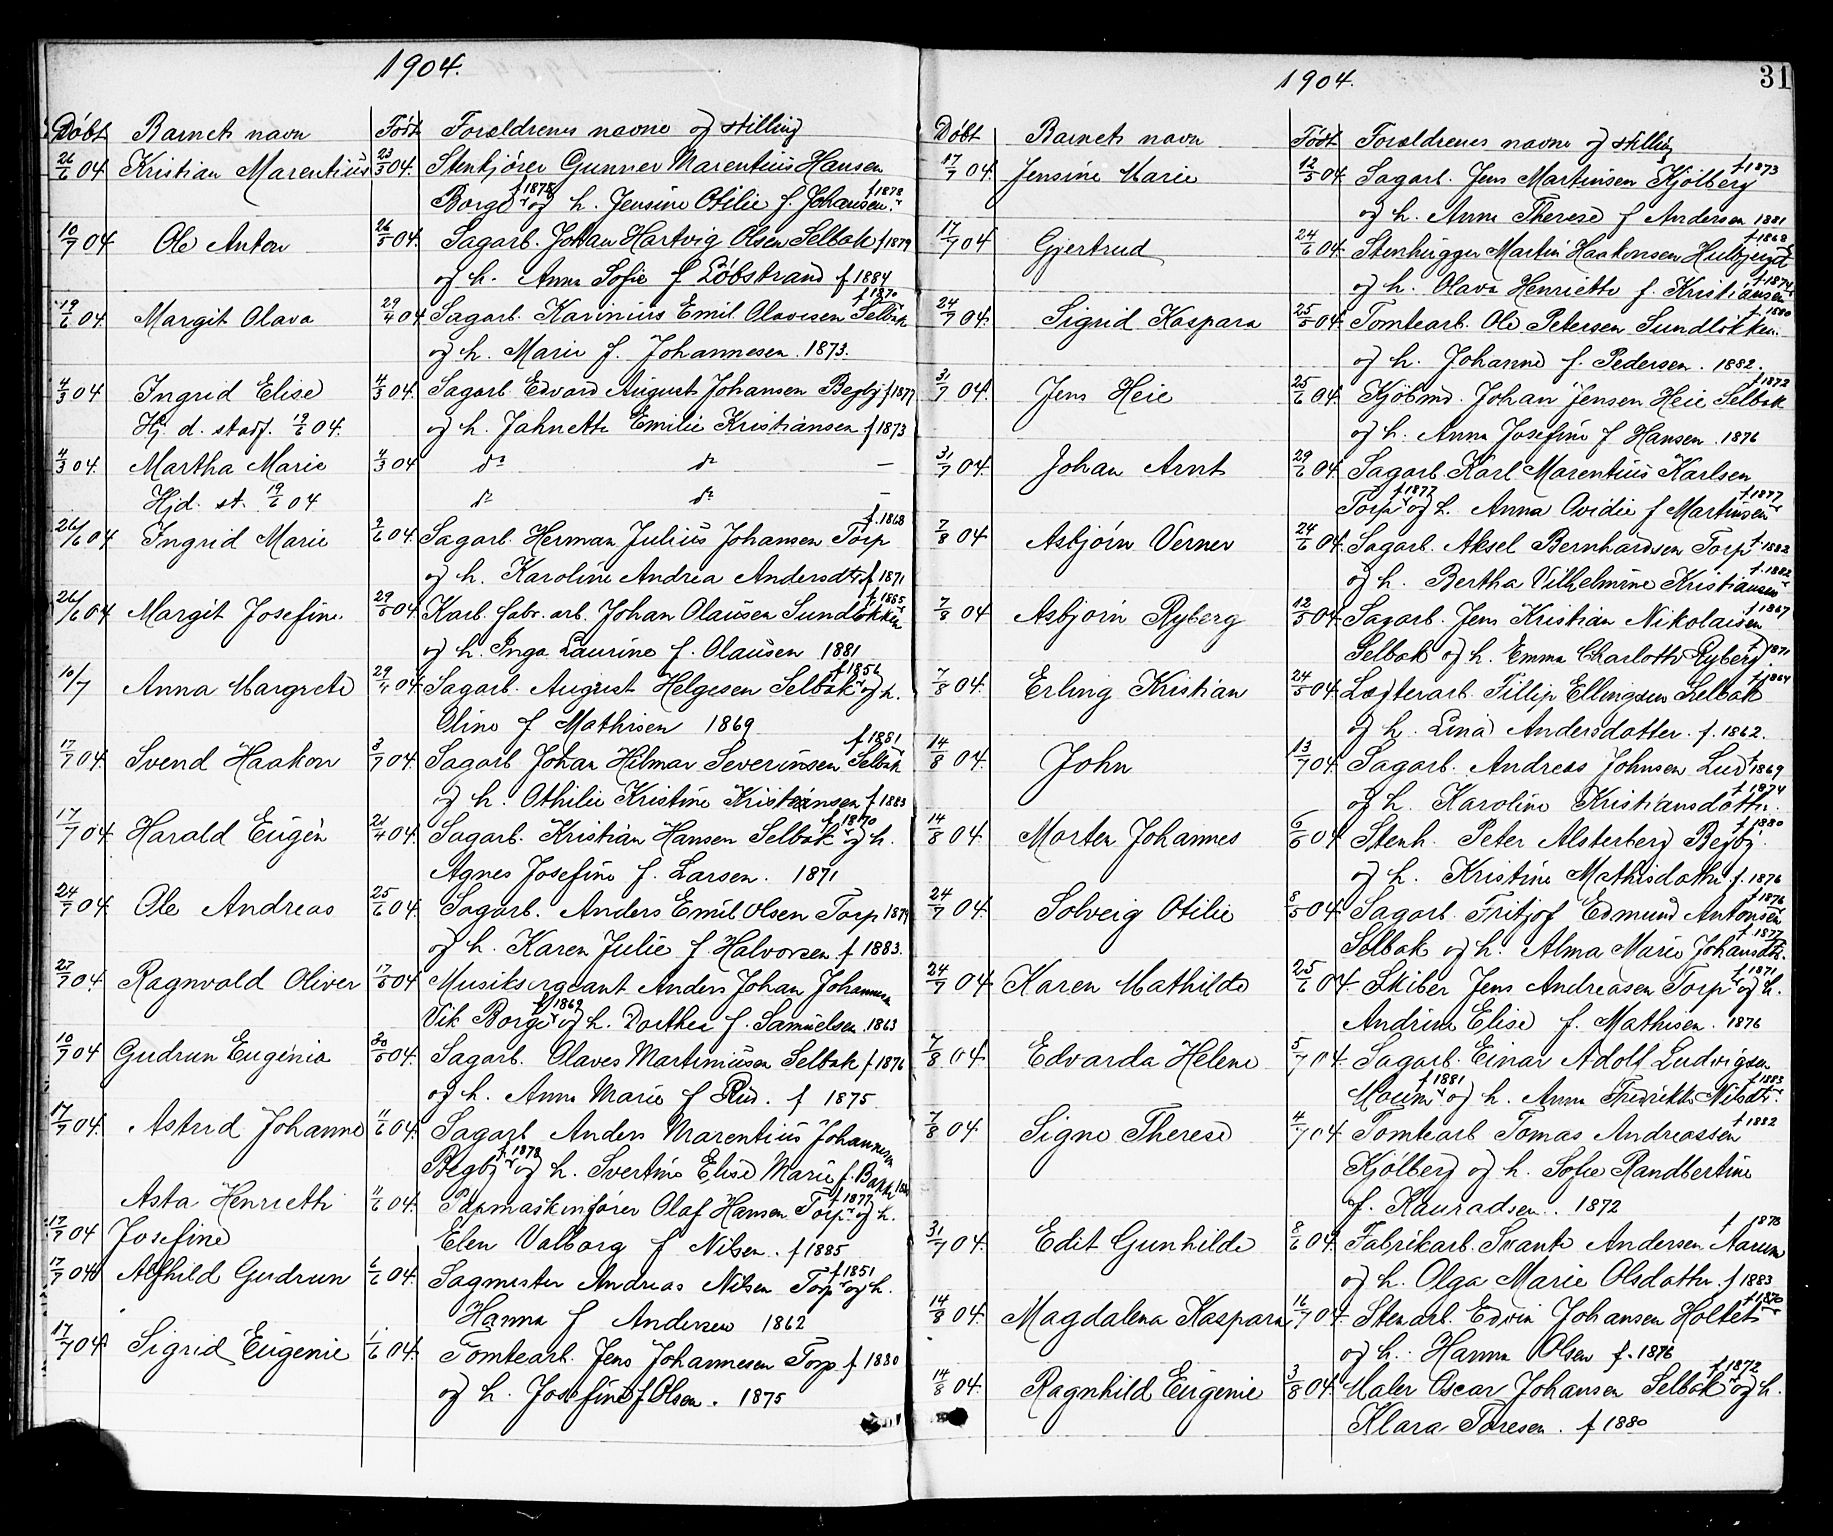 1904.
Döbt Barnets navn Født Forældrenes navne og stilling
26/6 04 Kristian Marentius 23/5 04. Stenkjører Gunner Marentius Hansen
Borge f 1878 og h. Jensine Otilie f. Johansen. f 1878
10/7 04 Ole Anton 26/5 04. Sagarb. Johan Hartvig Olsen Selbak f 1879
og h. Anna Sofie f Löbstrand f 1884
19/6 04. Margit Olava 29/4 04 Sagarb. Karinius Emil Olavesen Selbak f 1870
og h. Marie f. Johannesen. 1873.
4/3 04 Ingrid Elise 4/3 04. Sagarb. Edvard August Johansen Begby f 1877
Hj. d. stadf. 19/6 04. og h. Jahnette Emilie Kristiansen f 1873
4/3 04. Martha Marie 4/3 04 do do —
Hjd. st. 19/6 04 do do —
26/6 04 Ingrid Marie 2/6 04. Sagarb. Herman Julius Johansen Torp f. 1868
og h. Karoline Andrea Andersdtr f 1871
26/6 04 Margit Josefine. 29/5 04 Karb. fabr. arb. Johan Olausen Sundløkken
og h. Inga Laurine f. Olausen 1881
10/7 Anna Margrete 29/4 04 Sagarb. August Helgesen Selbak f 1856 og h.
Oline f Mathisen 1869
17/7 04. Svend Haakon 3/7 04. Sagarb. Johan Hilmar Severinsen Selbak f 1881
og h. Othilie Kristine Kristiansen f 1883
17/7 04. Harald Eugén 21/4 04. Sagarb. Kristian Hansen Selbak f 1870 og h.
Agnes Josefine f. Larsen. 1871
24/7 04. Ole Andreas 25/6 04. Sagarb. Anders Emil Olsen Torp 1879
og h. Karen Julie f Halvorsen f 1883.
27/7 04. Ragnvald Oliver 17/5 04 Musiksergeant Anders Johan Johannesen
Vik Borge f 1869 og h. Dorthea f. Samuelsen. 1863
10/7 04 Gudrun Eugenia 30/5 04. Sagarb. Olaves Martiniusen Selbak f 1876
og h. Anna Marie f Rud. f 1875
17/7 04. Astrid Johanne 11/6 04. Sagarb. Anders Marentius Johannesen
Begby f 1878 og h. Svertine Elise Marie f. Bakke
Asta Henriette 11/6 04. Papmaskinfører Olaf Hansen Torp f 1877 og h.
17/7 04 Josefine Elen Valborg f Nilsen. f 1885
17/7 04 Alfhild Gudrun 6/6 04. Sagmester Andreas Nilsen Torp f 1851 og h.
Hanna f Andersen 1862
17/7 04 Sigrid Eugenie 1/6 04. Tomtearb. Jens Johannesen Torp f 1880
og h. Josefine f Olsen. 1875
1904. 31
Döbt Barnets navn Født Forældrenes navne og stilling
17/7 04. Jensine Marie 12/5 04. Sagarb. Jens Martinsen Kjölberg f 1873
og h. Anna Therese f Andersen 1881
17/7 04 Gjertrud 24/6 04. Stenhugger Martin Haakonsen f 1868
og h. Olava Henriette f. Kristiansen f 1874
24/7 04. Sigrid Kaspara 25/5 04. Tomtearb. Ole Petersen Sundløkken. f 1880
og h. Johanne f. Pedersen. 1882.
31/7 04. Jens Heie 25/6 04. Kjøbmd. Johan Jensen Heie Selbak f 1872
og h. Anna Josefine f Hansen. 1876
31/7 04. Johan Arnt 29/6 04. Sagarb. Karl Marentius Karlsen
Torp f 1877 og h. Anna Ovidie f Martinsen f 1877
7/8 04 Asbjørn Verner 24/6 04. Sagarb. Aksel Bernhardsen Torp f. 1882
og h. Bertha Vilhelmine Kristiansen f. 1882
7/8 04 Asbjørn Ryberg 12/5 04. Sagarb. Jens Kristian Nikolaisen f 1867
Selbak og h. Emma Charlotte Ryberg f 1871
7/8 04. Erling Kristian 24/5 04. Lægterarb. Fillip Ellingsen Selbak f 1864
og h. Lina Andersdatter. f. 1862.
14/8 04. John 13/7 04. Sagarb. Andreas Johnsen Lud f 1869
og h. Karoline Kristiansdattr. f 1874
14/8 04. Morten Johannes 6/6 04. Stenh. Peter Alsterberg Begby. f 1880
og h. Kristine Mathisdattr f. 1876
24/7 04. Solveig Otilie 8/5 04. Sagarb. Fritjof Edmund Antonsen f 1876
Selbak og h. Alma Marie Johansdtr. f 1877
24/7 04. Karen Mathilde 25/6 04. Skiber Jens Andreasen Torp f 1871 og h.
Andrine Elise f. Mathisen. 1876
7/8 04. Edvarda Helene 5/7 04. Sagarb. Einar Adolf Ludvigsen
Moum f 1881 og h. Anna Fredrikke Nilsdtr. f 1883
7/8 04 Signe Therese 4/7 04 Tomtearb Tomas Andreassen f 1882
Kjölberg og h. Sofie Randbertine
f. Kauradsen. 1872
31/7 04. Edit Gunhilde 8/6 04. Fabrikarb. Svante Andersen Aarum f 1878
og h. Olga Marie Olsdattr. f 1883
14/8 04. Magdalena Kaspara 16/7 04 Stenarb. Edvin Johansen Holtet f 1870
og h. Hanna Olsen f. 1876
14/8 04. Ragnhild Eugenie 3/8 04. Maler Oscar Johansen Selbak f 1872 og h.
Klara Toresen. f 1880